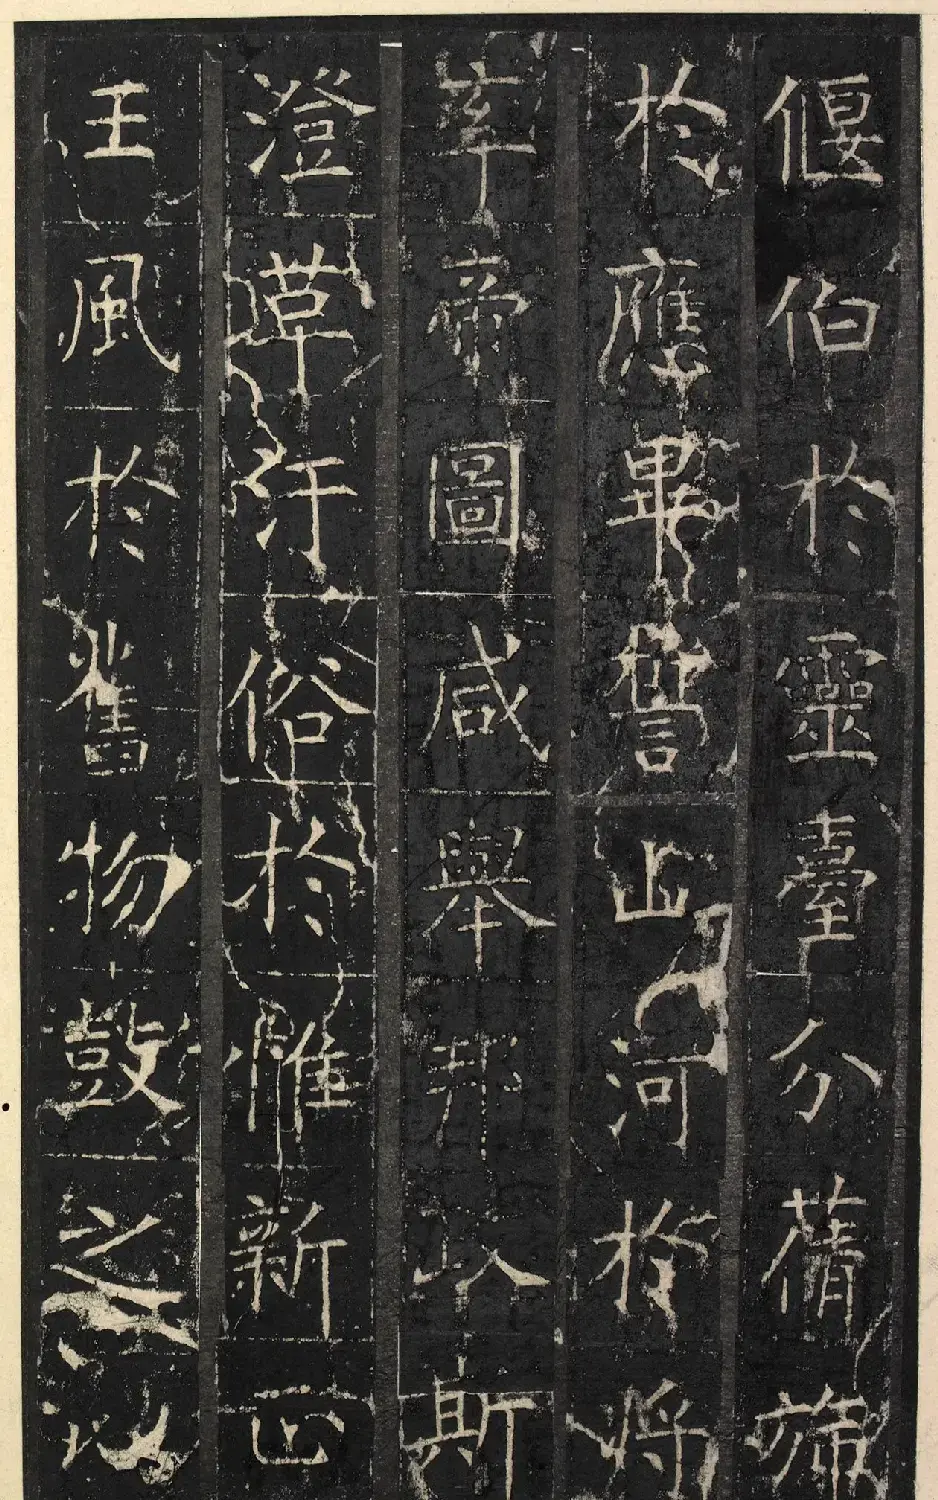 偃伯於靈臺分蒨旆
於應畢誓山河於將
率帝圖咸舉邦斯
澄革汙俗於惟新正
王風於舊物鼓之以